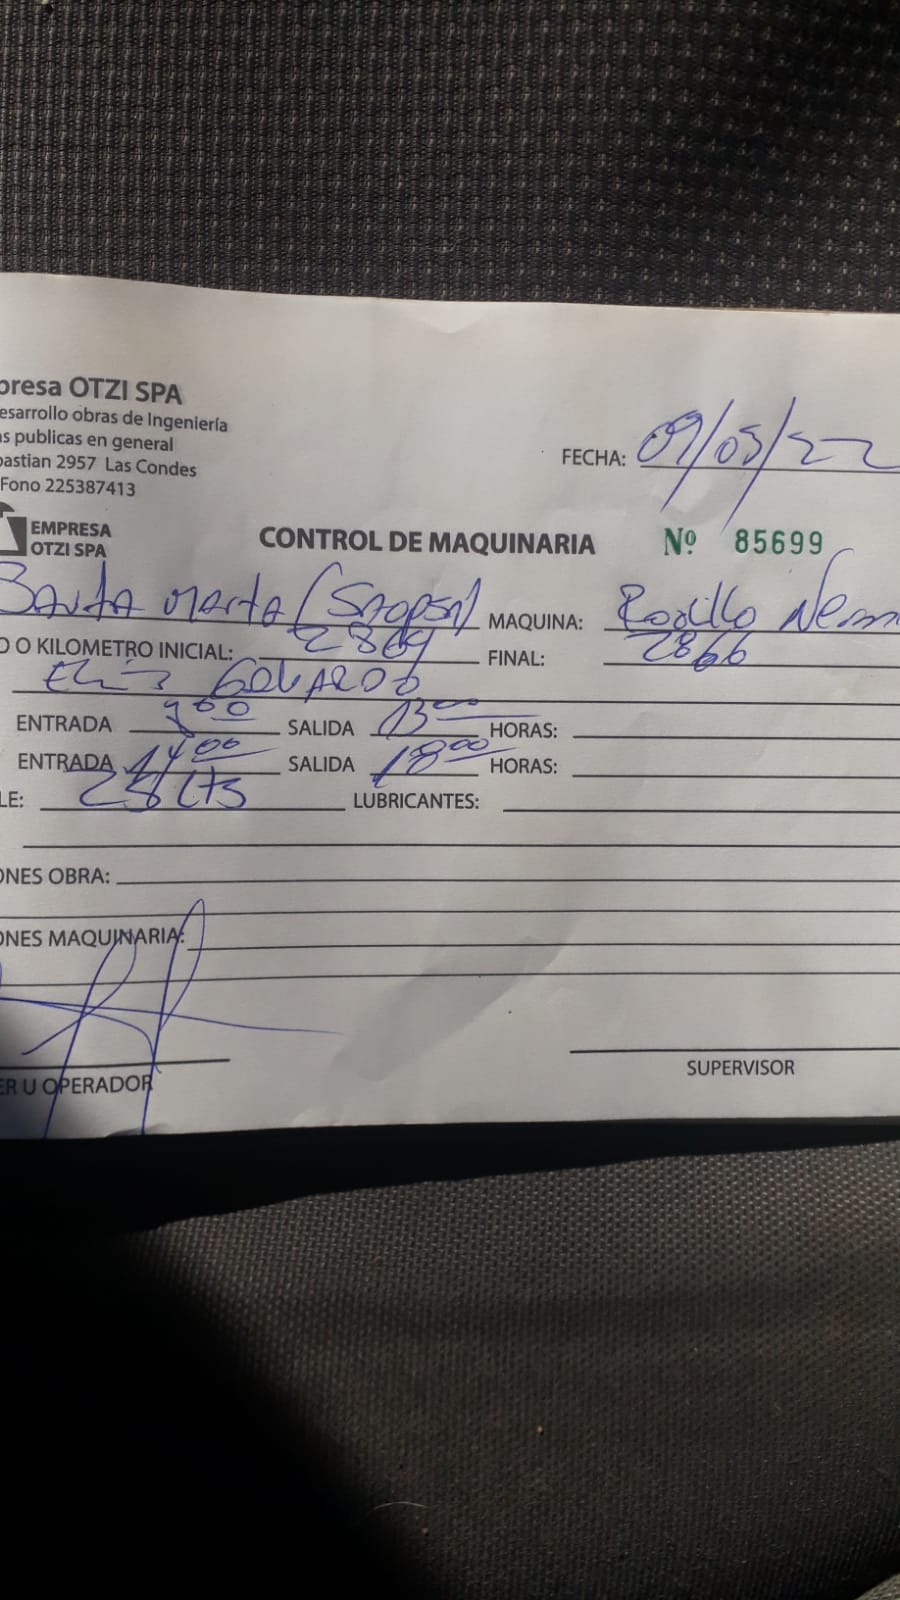 presa OTZI SPA
esarrollo obras de Ingeniería
as publicas en general
bastian 2957 Las Condes
Fono 225387413
FECHA: 09/05/22
EMPRESA
OTZI SPA
CONTROL DE MAQUINARIA Nº 85699
Santa Marta MAQUINA: Rodillo
O O KILOMETRO INICIAL: 2864 FINAL: 2866
ENTRADA 9:00 SALIDA 13:00 HORAS:
ENTRADA 14:00 SALIDA 18:00 HORAS:
LE: Lts LUBRICANTES:
ONES OBRA:
ONES MAQUINARIA:
ER U OPERADOR
SUPERVISOR